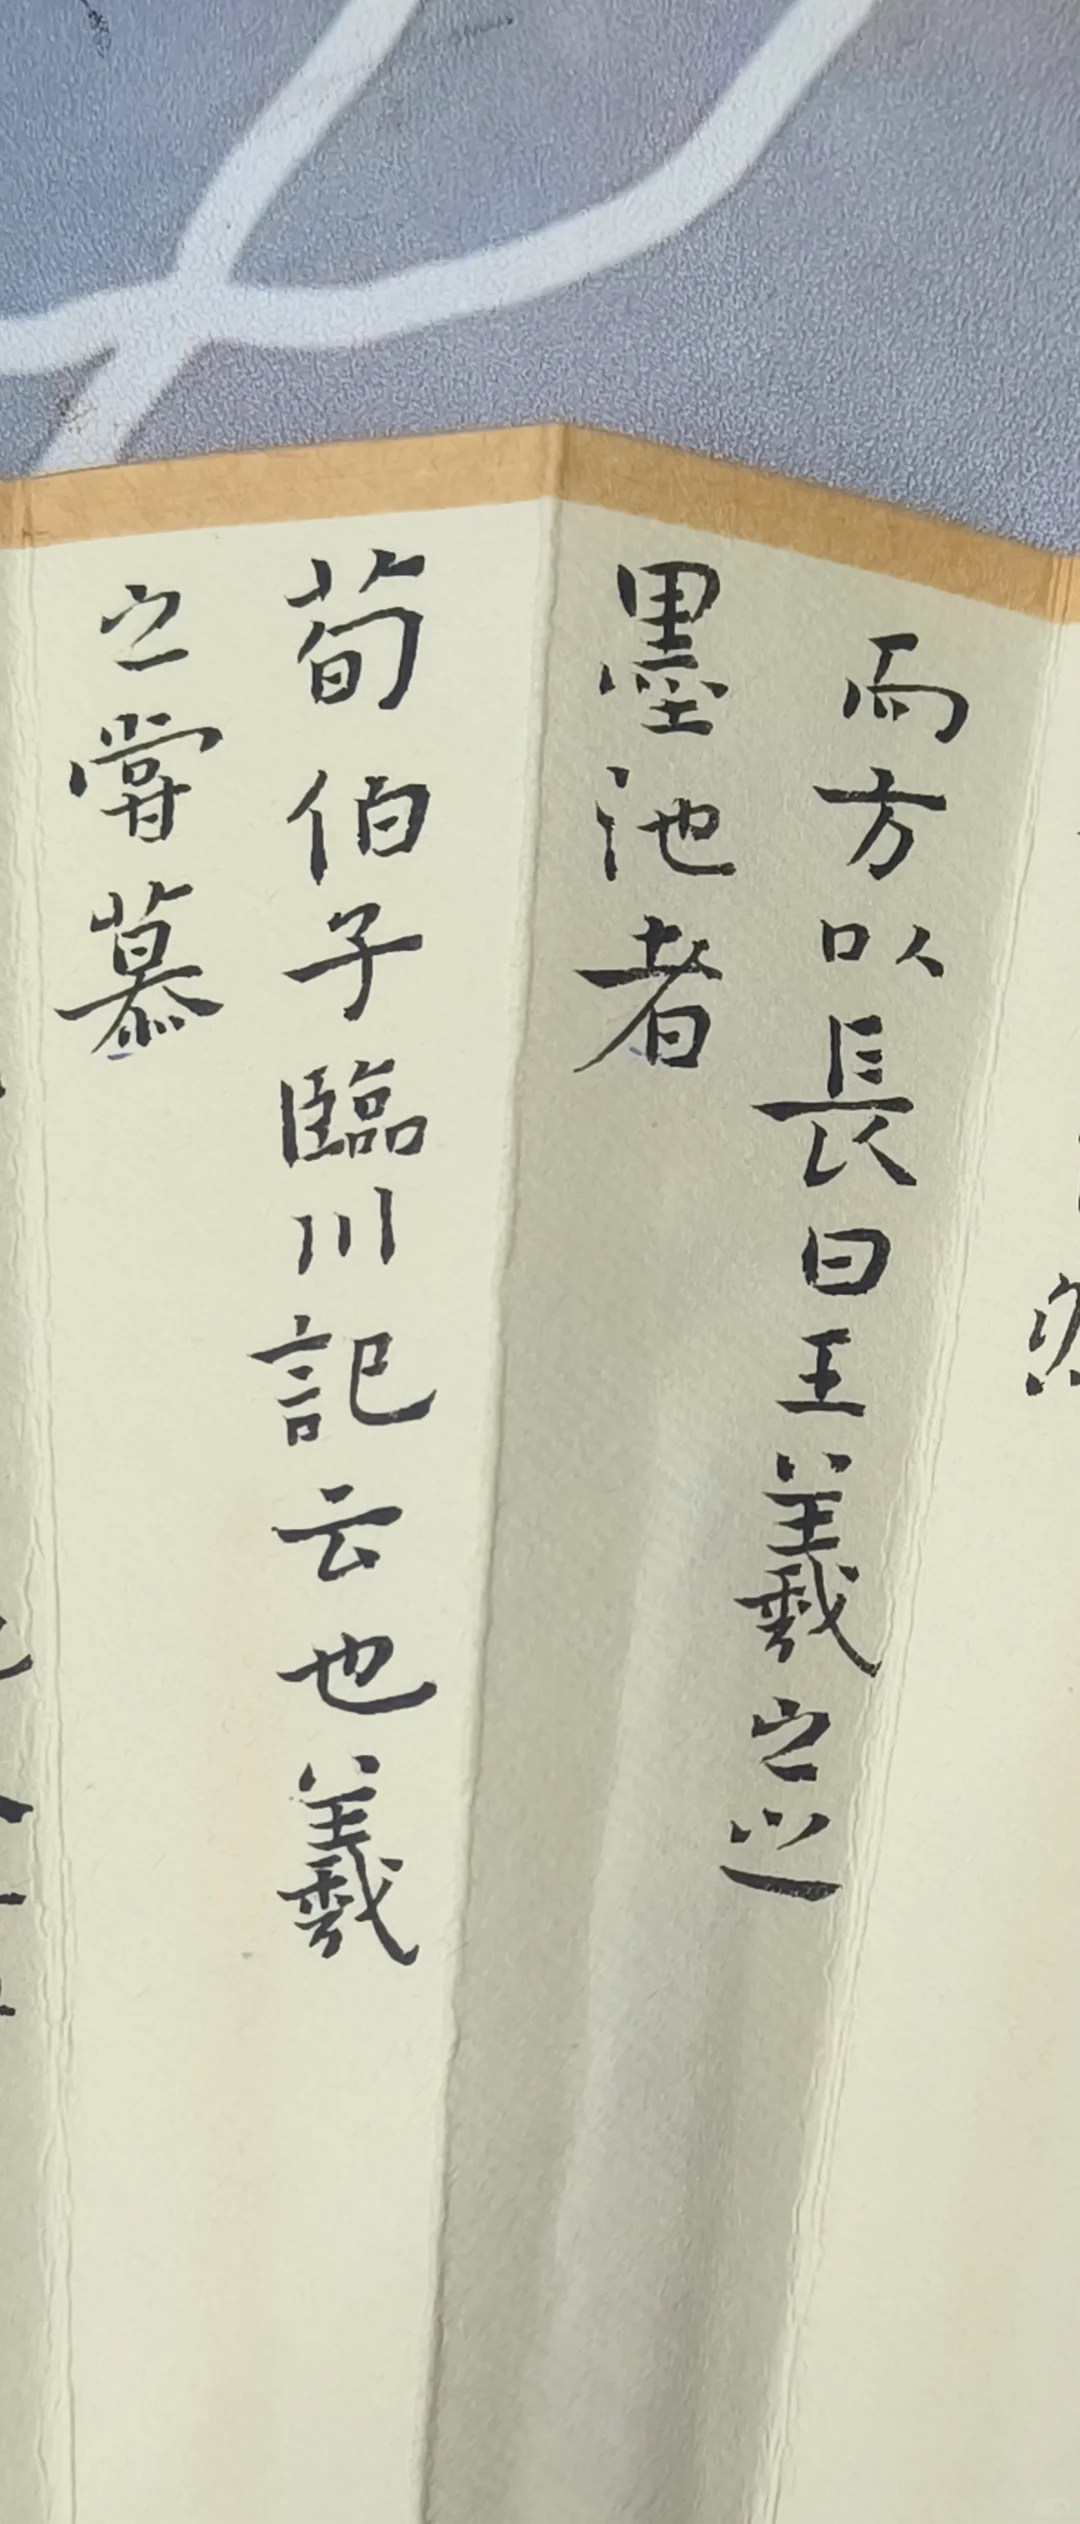 而方以長曰王羲之之
墨池者
荀伯子臨川記云也羲
之嘗慕